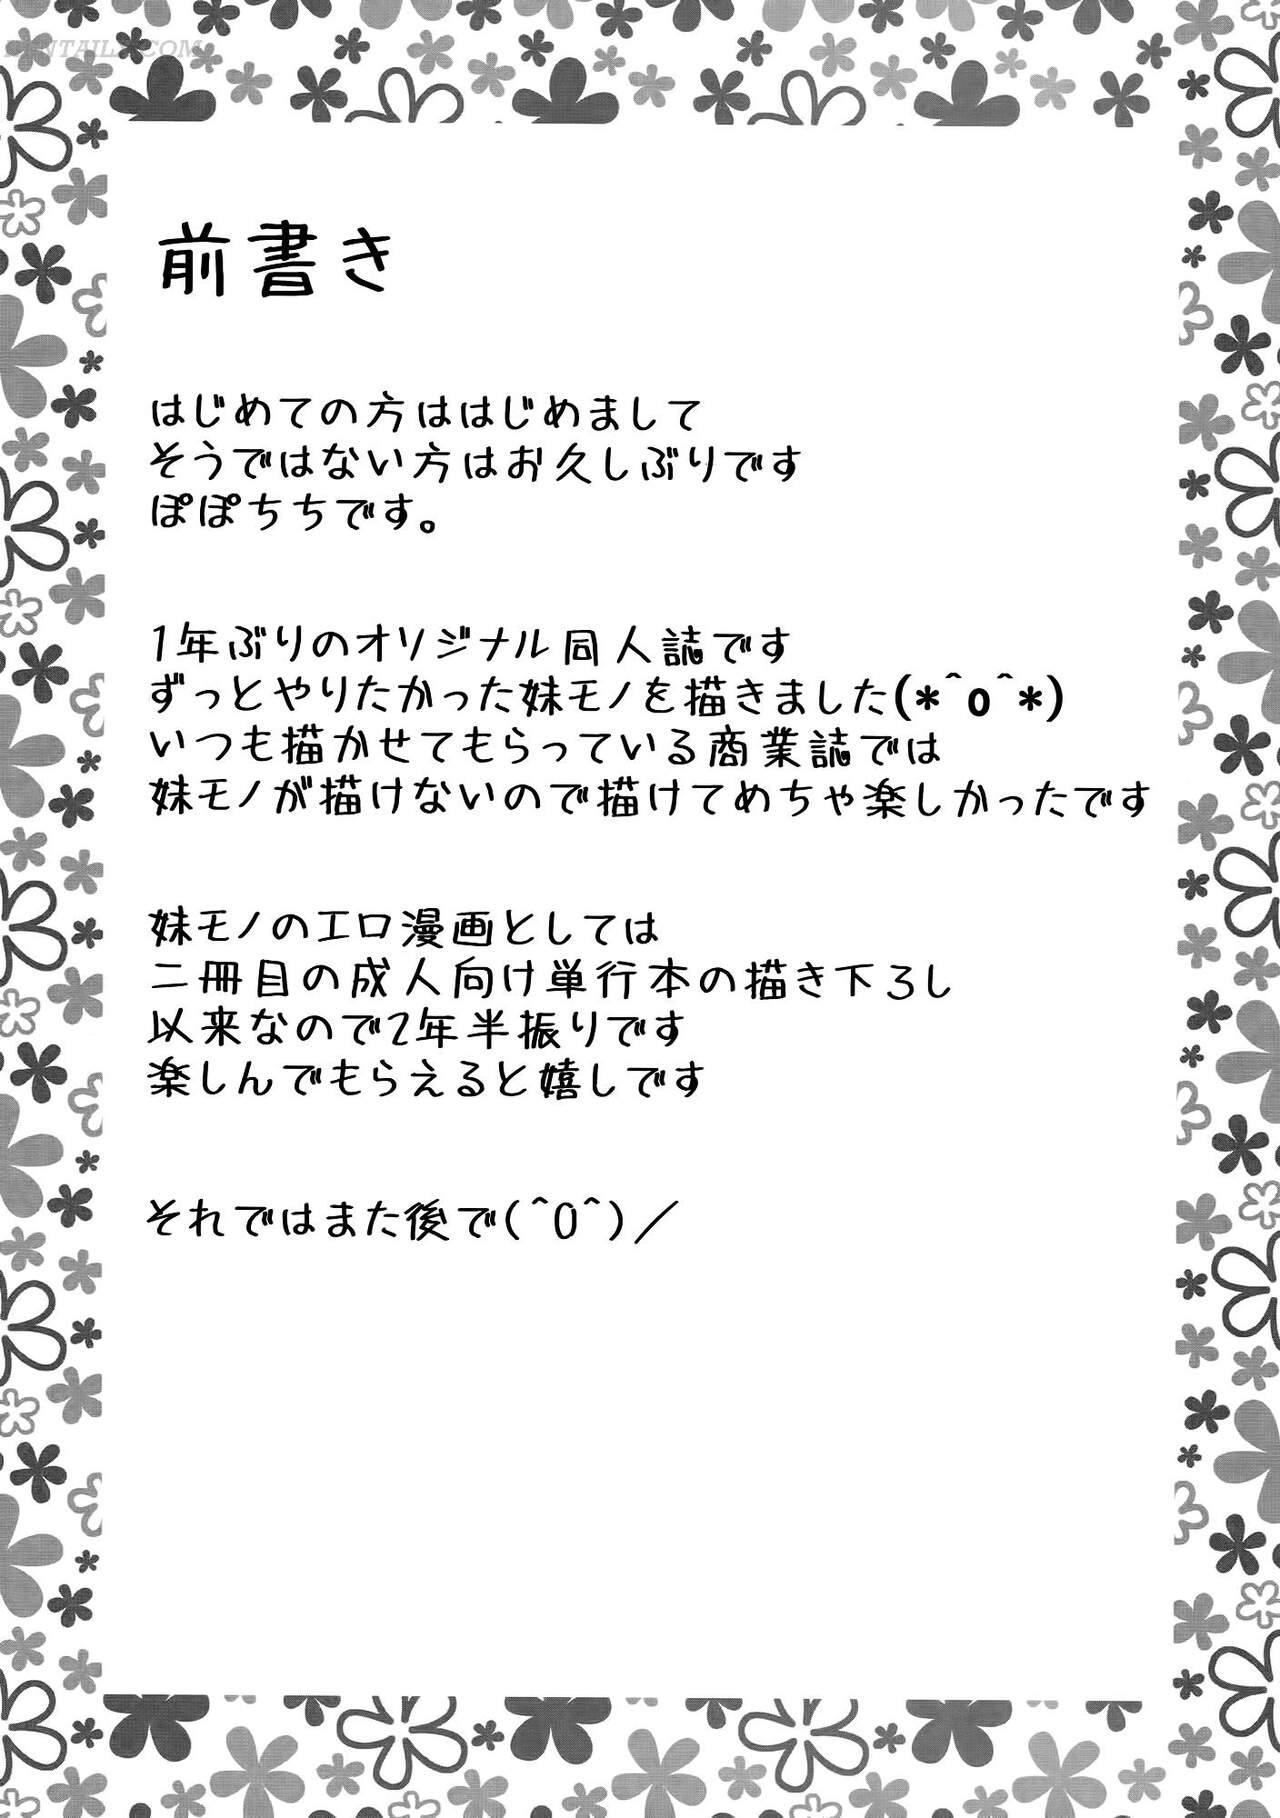 前書き
はじめての方ははじめまして
そうではない方はお久しぶりです
ぽぽちちです。
1年ぶりのオリジナル同人誌です
ずっとやりたかった妹モノを描きました(*^o^*)
いつも描かせてもらっている商業誌では
妹モノが描けないので描けてめちゃ楽しかったです
妹モノのエロ漫画としては
二冊目の成人向け単行本の描き下ろし
以来なので2年半振りです
楽しんでもらえると嬉しです
それではまた後で(^O^)／